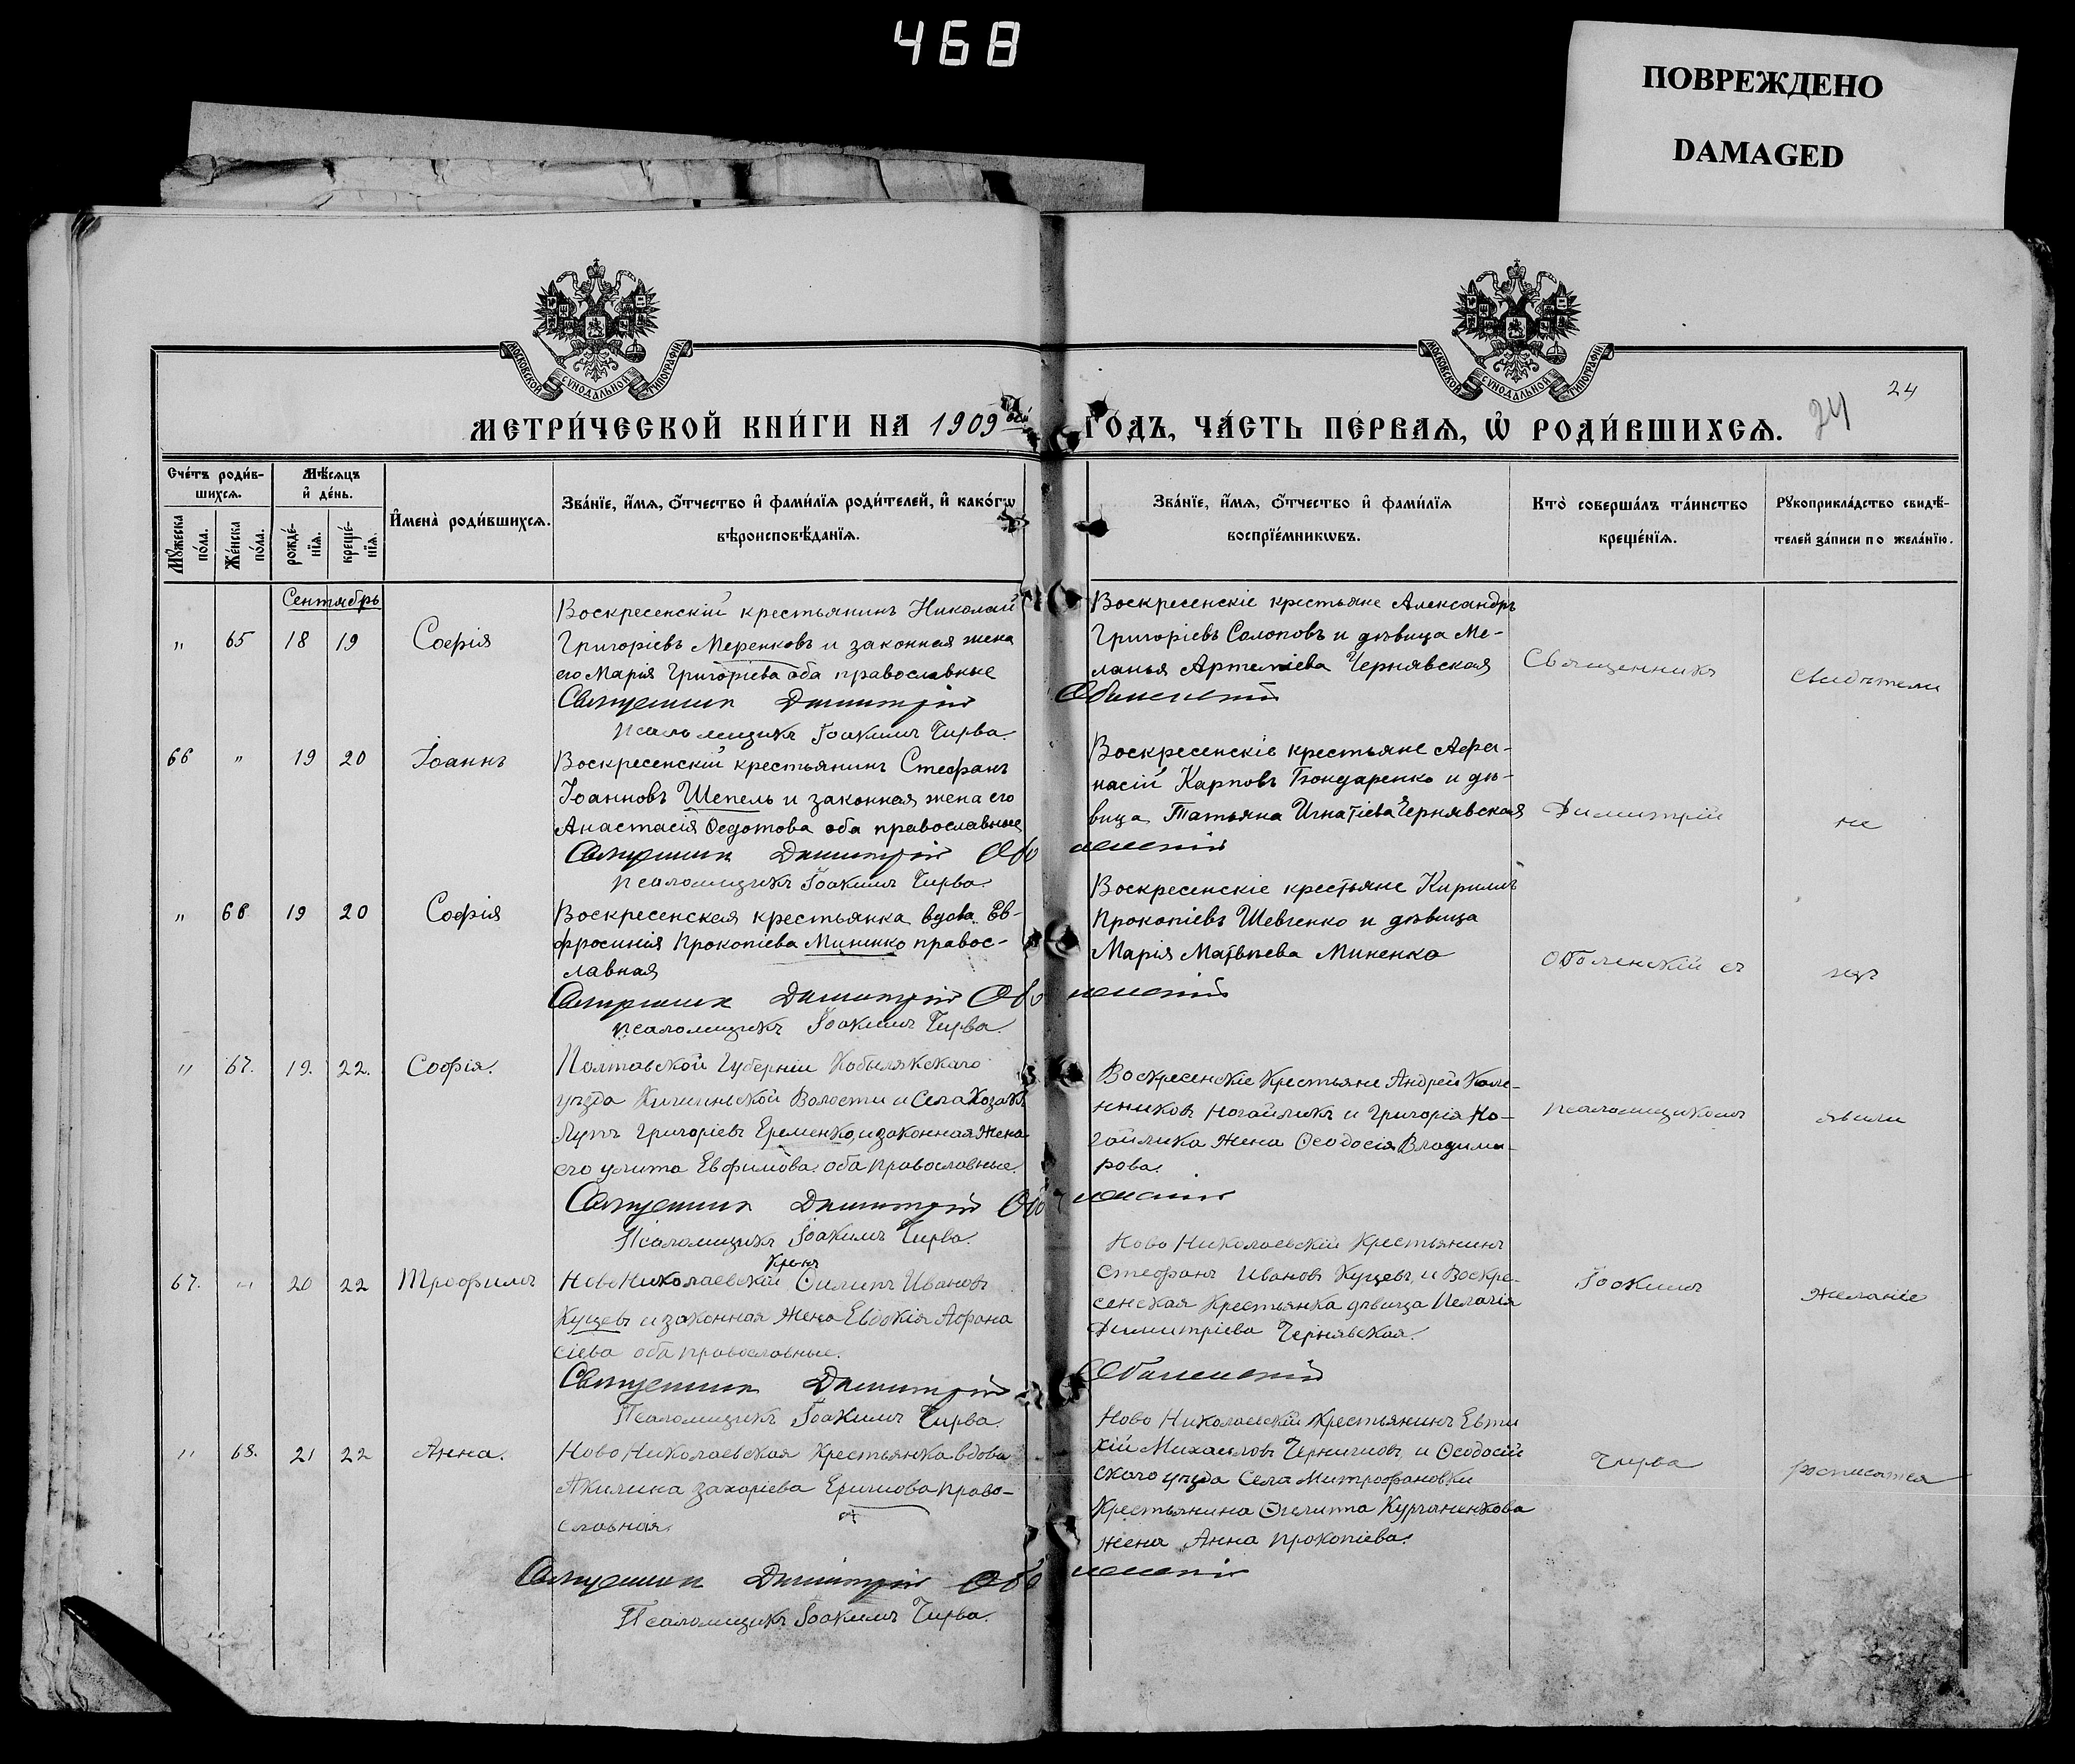 468
ПОВРЕЖДЕНО
DAMAGED
МОСКОВСКОЙ СѴНОДАЛЬНОЙ ТИПОГРАФІИ
МОСКОВСКОЙ СѴНОДАЛЬНОЙ ТИПОГРАФІИ
24
24
МЕТРИ́ЧЕСКОЙ КНИ́ГИ НА 1909 ГО́ДЪ, ЧА́СТЬ ПЕ́РВАѦ, Ѡ҆ РОДИ́ВШИХСѦ.
Сче́тъ роди́в-
шихсѧ.
Мꙋ́жеска по́ла.
Же́нска по́ла.
Мѣ́сѧцъ
и҆ де́нь.
рожде́-
нїѧ.
креще́-
нїѧ.
И҆мена̀ роди́вшихсѧ.
Зва́нїе, и҆́мѧ, ѻ҆́тчество и҆ фами́лїѧ роди́телей, и҆ како́гѡ
вѣроисповѣ́данїѧ.
Зва́нїе, и҆́мѧ, ѻ҆́тчество и҆ фами́лїѧ
воспрїе́мникѡвъ.
Кто̀ соверша́лъ та́инство
креще́нїѧ.
Рꙋкоприкла́дство свидѣ́-
телей за́писи по жела́нїю.
Сентябрь
" 65 18 19 Софія
Воскресенскій крестьянинъ Николай
Григоріевъ Меренковъ и законная жена
его Марія Григоріева оба православные
Воскресенскіе крестьяне Александръ
Григоріевъ Солоповъ и дѣвица Ме-
ланья Артеміева Чернявская
Священникъ Димитрій Оболенскій
Псаломщикъ Іоакимъ Чирва.
66 " 19 20 Іоаннъ
Воскресенскій крестьянинъ Стефанъ
Іоанновъ Шепель и законная жена его
Анастасія Ѳедотова оба православные
Воскресенскіе крестьяне Афа-
насій Карповъ Бондаренко и дѣ-
вица Татьяна Игнатіева Чернявская
Священникъ Димитрій Оболенскій
Псаломщикъ Іоакимъ Чирва.
" 66 19 20 Софія
Воскресенская крестьянка вдова Ев-
фросинія Прокопіева Миненко правос-
лавная
Воскресенскіе крестьяне Кириллъ
Прокопіевъ Шевченко и дѣвица
Марія Матвѣева Миненко
Священникъ Димитрій Оболенскій
псаломщикъ Іоакимъ Чирва.
" 67. 19. 22. Софія.
Полтавской Губерніи Кобылякскаго
уѣзда Волости и Села Козакъ
Лупъ Григоріевъ Еременко, и законная Жена
его улита Евфимова. оба православные.
Воскресенскіе Крестьяне Андрей Кале-
нниковъ Ногайликъ и Григорія Но-
гайлика Жена Ѳеодосія Владими-
рова.
Священникъ Димитрій Оболенскій
Псаломщикъ Іоакимъ Чирва.
67. " 20 22 Трофимъ
Крын
Ново Николаевскій Филипъ Ивановъ
Куцевъ и законная Жена Евдокія Афана
сіева оба православные.
Ново Николаевскій Крестьянинъ
Стефанъ Ивановъ Куцевъ, и Воскре-
сенская Крестьянка дѣвица Пелагія
Димитріева Чернявская.
Священникъ Димитрій Оболенскій
Псаломщикъ Іоакимъ Чирва.
" 68. 21 22 Анна.
Ново Николаевская Крестьянка вдова
Акилина Захаріева Еричиова право-
славная.
Ново Николаевскій Крестьянинъ Евти
хій Михаиловъ и Ѳеодосій
скаго уѣзда Села Митрофановки
Крестьянина
жена Анна Прокопіева.
Священникъ Димитрій Оболенскій
Псаломщикъ Іоакимъ Чирва.
Священникъ
Димитрій
Оболенскій съ
псаломщикомъ
Іоакимъ
Чирва
Свидѣтели
не
изъ
явили
желаніе
росписатся